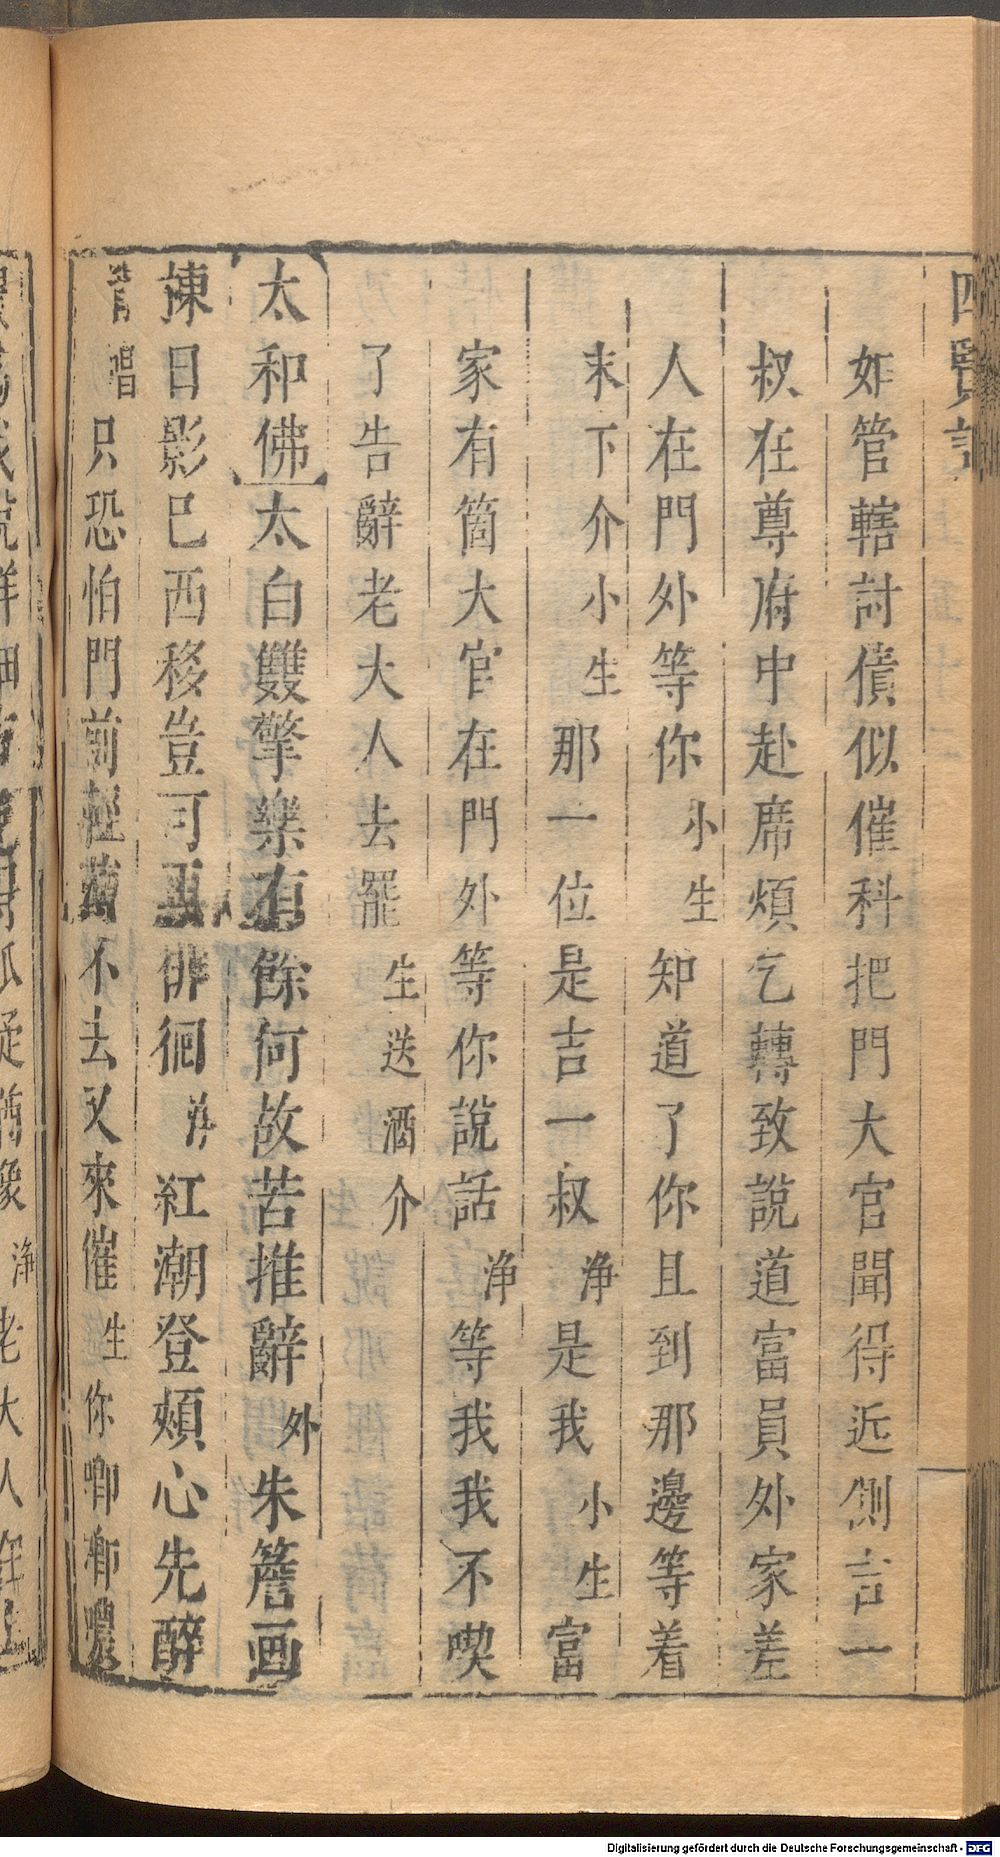 四賢記
如管轄討債似催科把門大官聞得近側言一
叔在尊府中赴席煩乞轉致說道富員外家差
人在門外等你小生知道了你且到那邊等着
末下介小生那一位是吉一叔淨是我小生富
家有箇大官在門外等你說話淨等我我不喫
了告辭老大人去罷生送酒介
太和佛太白雙擎樂有餘何故苦推辭外朱簷画
揀日影巳西移豈可再俳徊紅潮登頰心先醉
唱只恐怕門前輕薄不去又來催生你喞噥
Digitalisierung gefördert durch die Deutsche Forschungsgemeinschaft - DFG